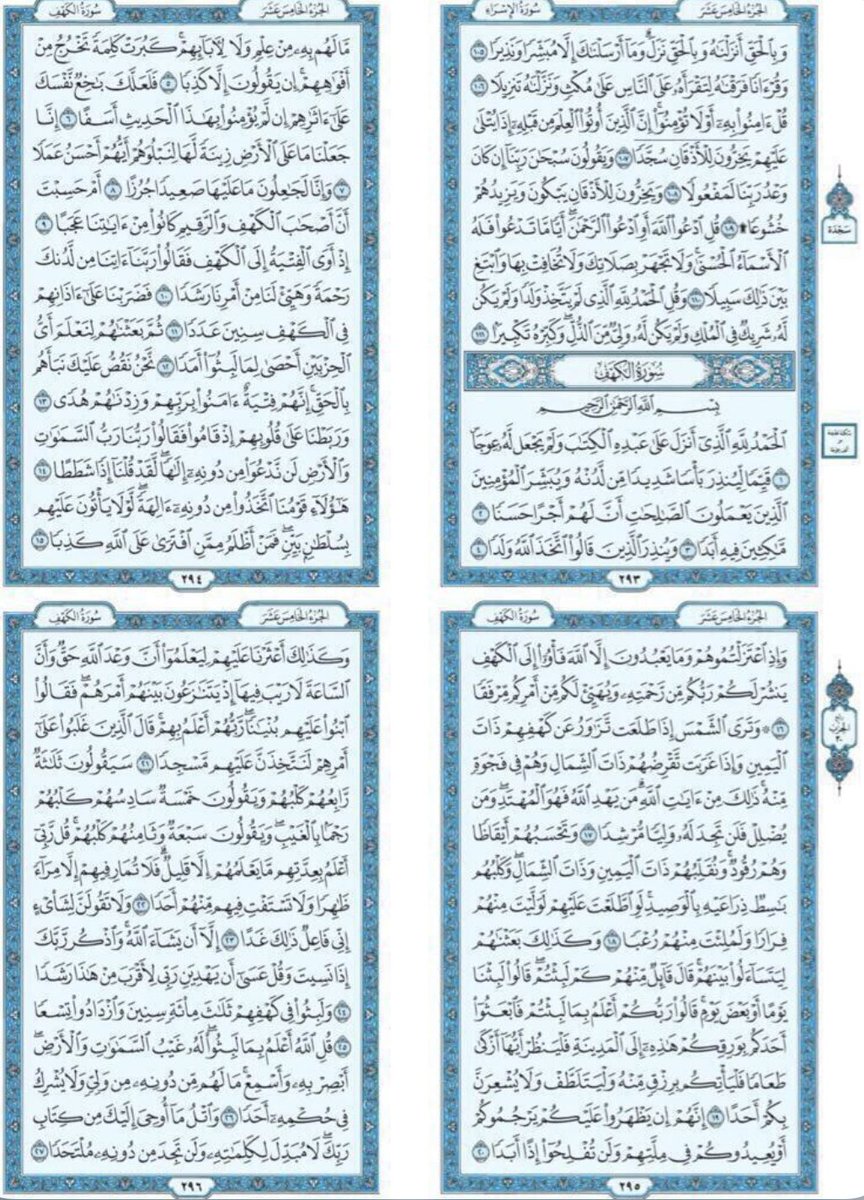 الجزء الخامس عشر
سورة الإسراء
وَبِالْحَقِّ أَنزَلْنَاهُ وَبِالْحَقِّ نَزَلَ ۗ وَمَا أَرْسَلْنَاكَ إِلَّا مُبَشِّرًا وَنَذِيرًا ١٠٥
وَقُرْءَانًا فَرَقْنَاهُ لِتَقْرَأَهُۥ عَلَى النَّاسِ عَلَىٰ مُكْثٍ وَنَزَّلْنَاهُ تَنزِيلًا ١٠٦
قُلْ ءَامِنُوا بِهِۦٓ أَوْ لَا تُؤْمِنُوٓا ۚ إِنَّ الَّذِينَ أُوتُوا الْعِلْمَ مِن قَبْلِهِۦٓ إِذَا يُتْلَىٰ
عَلَيْهِمْ يَخِرُّونَ لِلْأَذْقَانِ سُجَّدًا ١٠٧ وَيَقُولُونَ سُبْحَٰنَ رَبِّنَآ إِن كَانَ
وَعْدُ رَبِّنَا لَمَفْعُولًا ١٠٨ وَيَخِرُّونَ لِلْأَذْقَانِ يَبْكُونَ وَيَزِيدُهُمْ
خُشُوعًا ۩ ١٠٩ قُلِ ادْعُوا اللَّهَ أَوِ ادْعُوا الرَّحْمَٰنَ ۖ أَيًّا مَّا تَدْعُوا فَلَهُ
الْأَسْمَآءُ الْحُسْنَىٰ ۚ وَلَا تَجْهَرْ بِصَلَاتِكَ وَلَا تُخَافِتْ بِهَا وَابْتَغِ
بَيْنَ ذَٰلِكَ سَبِيلًا ١١٠ وَقُلِ الْحَمْدُ لِلَّهِ الَّذِي لَمْ يَتَّخِذْ وَلَدًا وَلَمْ يَكُن
لَّهُۥ شَرِيكٌ فِي الْمُلْكِ وَلَمْ يَكُن لَّهُۥ وَلِيٌّ مِّنَ الذُّلِّ ۖ وَكَبِّرْهُ تَكْبِيرًۢا ١١١
سورة الكهف
بِسْمِ اللَّهِ الرَّحْمَٰنِ الرَّحِيمِ
الْحَمْدُ لِلَّهِ الَّذِيٓ أَنزَلَ عَلَىٰ عَبْدِهِ الْكِتَٰبَ وَلَمْ يَجْعَل لَّهُۥ عِوَجَا
١ قَيِّمًا لِّيُنذِرَ بَأْسًا شَدِيدًا مِّن لَّدُنْهُ وَيُبَشِّرَ الْمُؤْمِنِينَ
الَّذِينَ يَعْمَلُونَ الصَّٰلِحَٰتِ أَنَّ لَهُمْ أَجْرًا حَسَنًا ٢
مَّٰكِثِينَ فِيهِ أَبَدًا ٣ وَيُنذِرَ الَّذِينَ قَالُوا اتَّخَذَ اللَّهُ وَلَدًا ٤
٢٩٣
سجدة
الجزء الخامس عشر
سورة الكهف
مَّا لَهُم بِهِۦ مِنْ عِلْمٍ وَلَا لِءَابَآئِهِمْ ۚ كَبُرَتْ كَلِمَةً تَخْرُجُ مِنْ
أَفْوَٰهِهِمْ ۚ إِن يَقُولُونَ إِلَّا كَذِبًا ٥ فَلَعَلَّكَ بَٰخِعٌ نَّفْسَكَ
عَلَىٰٓ ءَاثَٰرِهِمْ إِن لَّمْ يُؤْمِنُوا بِهَٰذَا الْحَدِيثِ أَسَفًا ٦ إِنَّا
جَعَلْنَا مَا عَلَى الْأَرْضِ زِينَةً لَّهَا لِنَبْلُوَهُمْ أَيُّهُمْ أَحْسَنُ عَمَلًا
٧ وَإِنَّا لَجَٰعِلُونَ مَا عَلَيْهَا صَعِيدًا جُرُزًا ٨ أَمْ حَسِبْتَ
أَنَّ أَصْحَٰبَ الْكَهْفِ وَالرَّقِيمِ كَانُوا مِنْ ءَايَٰتِنَا عَجَبًا ٩
إِذْ أَوَى الْفِتْيَةُ إِلَى الْكَهْفِ فَقَالُوا رَبَّنَآ ءَاتِنَا مِن لَّدُنكَ
رَحْمَةً وَهَيِّئْ لَنَا مِنْ أَمْرِنَا رَشَدًا ١٠ فَضَرَبْنَا عَلَىٰٓ ءَاذَانِهِمْ
فِي الْكَهْفِ سِنِينَ عَدَدًا ١١ ثُمَّ بَعَثْنَٰهُمْ لِنَعْلَمَ أَيُّ
الْحِزْبَيْنِ أَحْصَىٰ لِمَا لَبِثُوٓا أَمَدًا ١٢ نَّحْنُ نَقُصُّ عَلَيْكَ نَبَأَهُم
بِالْحَقِّ ۚ إِنَّهُمْ فِتْيَةٌ ءَامَنُوا بِرَبِّهِمْ وَزِدْنَٰهُمْ هُدًى ١٣
وَرَبَطْنَا عَلَىٰ قُلُوبِهِمْ إِذْ قَامُوا فَقَالُوا رَبُّنَا رَبُّ السَّمَٰوَٰتِ
وَالْأَرْضِ لَن نَّدْعُوَا مِن دُونِهِۦٓ إِلَٰهًا ۖ لَّقَدْ قُلْنَآ إِذًا شَطَطًا ١٤
هَٰٓؤُلَآءِ قَوْمُنَا اتَّخَذُوا مِن دُونِهِۦٓ ءَالِهَةً ۖ لَّوْلَا يَأْتُونَ عَلَيْهِم
بِسُلْطَٰنٍۭ بَيِّنٍ ۖ فَمَنْ أَظْلَمُ مِمَّنِ افْتَرَىٰ عَلَى اللَّهِ كَذِبًا ١٥
٢٩٤
الجزء الخامس عشر
سورة الكهف
وَإِذِ اعْتَزَلْتُمُوهُمْ وَمَا يَعْبُدُونَ إِلَّا اللَّهَ فَأْوُۥٓا إِلَى الْكَهْفِ
يَنشُرْ لَكُمْ رَبُّكُم مِّن رَّحْمَتِهِۦ وَيُهَيِّئْ لَكُم مِّنْ أَمْرِكُم مِّرْفَقًا
١٦ ۞ وَتَرَى الشَّمْسَ إِذَا طَلَعَت تَّزَٰوَرُ عَن كَهْفِهِمْ ذَاتَ
الْيَمِينِ وَإِذَا غَرَبَت تَّقْرِضُهُمْ ذَاتَ الشِّمَالِ وَهُمْ فِي فَجْوَةٍ
مِّنْهُ ۚ ذَٰلِكَ مِنْ ءَايَٰتِ اللَّهِ ۗ مَن يَهْدِ اللَّهُ فَهُوَ الْمُهْتَدِ ۖ وَمَن
يُضْلِلْ فَلَن تَجِدَ لَهُۥ وَلِيًّا مُّرْشِدًا ١٧ وَتَحْسَبُهُمْ أَيْقَاظًا
وَهُمْ رُقُودٌ ۚ وَنُقَلِّبُهُمْ ذَاتَ الْيَمِينِ وَذَاتَ الشِّمَالِ ۖ وَكَلْبُهُم
بَٰسِطٌ ذِرَاعَيْهِ بِالْوَصِيدِ ۚ لَوِ اطَّلَعْتَ عَلَيْهِمْ لَوَلَّيْتَ مِنْهُمْ
فِرَارًا وَلَمُلِئْتَ مِنْهُمْ رُعْبًا ١٨ وَكَذَٰلِكَ بَعَثْنَٰهُمْ
لِيَتَسَآءَلُوا بَيْنَهُمْ ۚ قَالَ قَآئِلٌ مِّنْهُمْ كَمْ لَبِثْتُمْ ۖ قَالُوا لَبِثْنَا
يَوْمًا أَوْ بَعْضَ يَوْمٍ ۚ قَالُوا رَبُّكُمْ أَعْلَمُ بِمَا لَبِثْتُمْ فَابْعَثُوٓا
أَحَدَكُم بِوَرِقِكُمْ هَٰذِهِۦٓ إِلَى الْمَدِينَةِ فَلْيَنظُرْ أَيُّهَآ أَزْكَىٰ
طَعَامًا فَلْيَأْتِكُم بِرِزْقٍ مِّنْهُ وَلْيَتَلَطَّفْ وَلَا يُشْعِرَنَّ
بِكُمْ أَحَدًا ١٩ إِنَّهُمْ إِن يَظْهَرُوا عَلَيْكُمْ يَرْجُمُوكُمْ
أَوْ يُعِيدُوكُمْ فِي مِلَّتِهِمْ وَلَن تُفْلِحُوٓا إِذًا أَبَدًا ٢٠
٢٩٥
الجزء الخامس عشر
سورة الكهف
وَكَذَٰلِكَ أَعْثَرْنَا عَلَيْهِمْ لِيَعْلَمُوٓا أَنَّ وَعْدَ اللَّهِ حَقٌّ وَأَنَّ
السَّاعَةَ لَا رَيْبَ فِيهَآ إِذْ يَتَنَٰزَعُونَ بَيْنَهُمْ أَمْرَهُمْ ۖ فَقَالُوا
ابْنُوا عَلَيْهِم بُنْيَٰنًا ۖ رَّبُّهُمْ أَعْلَمُ بِهِمْ ۚ قَالَ الَّذِينَ غَلَبُوا عَلَىٰٓ
أَمْرِهِمْ لَنَتَّخِذَنَّ عَلَيْهِم مَّسْجِدًا ٢١ سَيَقُولُونَ ثَلَٰثَةٌ
رَّابِعُهُمْ كَلْبُهُمْ وَيَقُولُونَ خَمْسَةٌ سَادِسُهُمْ كَلْبُهُمْ
رَجْمًۢا بِالْغَيْبِ ۖ وَيَقُولُونَ سَبْعَةٌ وَثَامِنُهُمْ كَلْبُهُمْ ۚ قُل رَّبِّيٓ
أَعْلَمُ بِعِدَّتِهِم مَّا يَعْلَمُهُمْ إِلَّا قَلِيلٌ ۗ فَلَا تُمَارِ فِيهِمْ إِلَّا مِرَآءً
ظَٰهِرًا وَلَا تَسْتَفْتِ فِيهِم مِّنْهُمْ أَحَدًا ٢٢ وَلَا تَقُولَنَّ لِشَا۟يْءٍ
إِنِّي فَاعِلٌ ذَٰلِكَ غَدًا ٢٣ إِلَّآ أَن يَشَآءَ اللَّهُ ۚ وَاذْكُر رَّبَّكَ
إِذَا نَسِيتَ وَقُلْ عَسَىٰٓ أَن يَهْدِيَنِ رَبِّي لِأَقْرَبَ مِنْ هَٰذَا رَشَدًا
٢٤ وَلَبِثُوا فِي كَهْفِهِمْ ثَلَٰثَ مِا۟ئَةٍ سِنِينَ وَازْدَادُوا تِسْعًا
٢٥ قُلِ اللَّهُ أَعْلَمُ بِمَا لَبِثُوا ۖ لَهُۥ غَيْبُ السَّمَٰوَٰتِ وَالْأَرْضِ ۖ
أَبْصِرْ بِهِۦ وَأَسْمِعْ ۚ مَا لَهُم مِّن دُونِهِۦ مِن وَلِيٍّ وَلَا يُشْرِكُ
فِي حُكْمِهِۦٓ أَحَدًا ٢٦ وَاتْلُ مَآ أُوحِيَ إِلَيْكَ مِن كِتَابِ
رَبِّكَ ۖ لَا مُبَدِّلَ لِكَلِمَٰتِهِۦ وَلَن تَجِدَ مِن دُونِهِۦ مُلْتَحَدًا ٢٧
٢٩٦